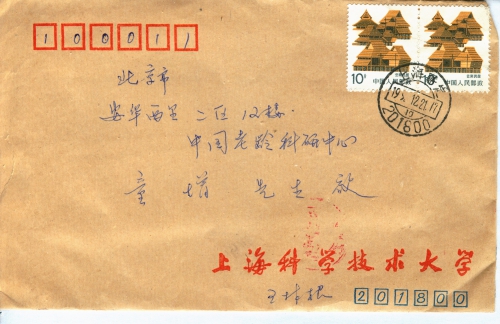 100011
北京市
安华西里二区12楼
中国老龄科研中心
童 先生 敬
10分 10分
中国人民邮政 中国人民邮政
12.21.17
201800
上海科学技术大学
王 根
201800